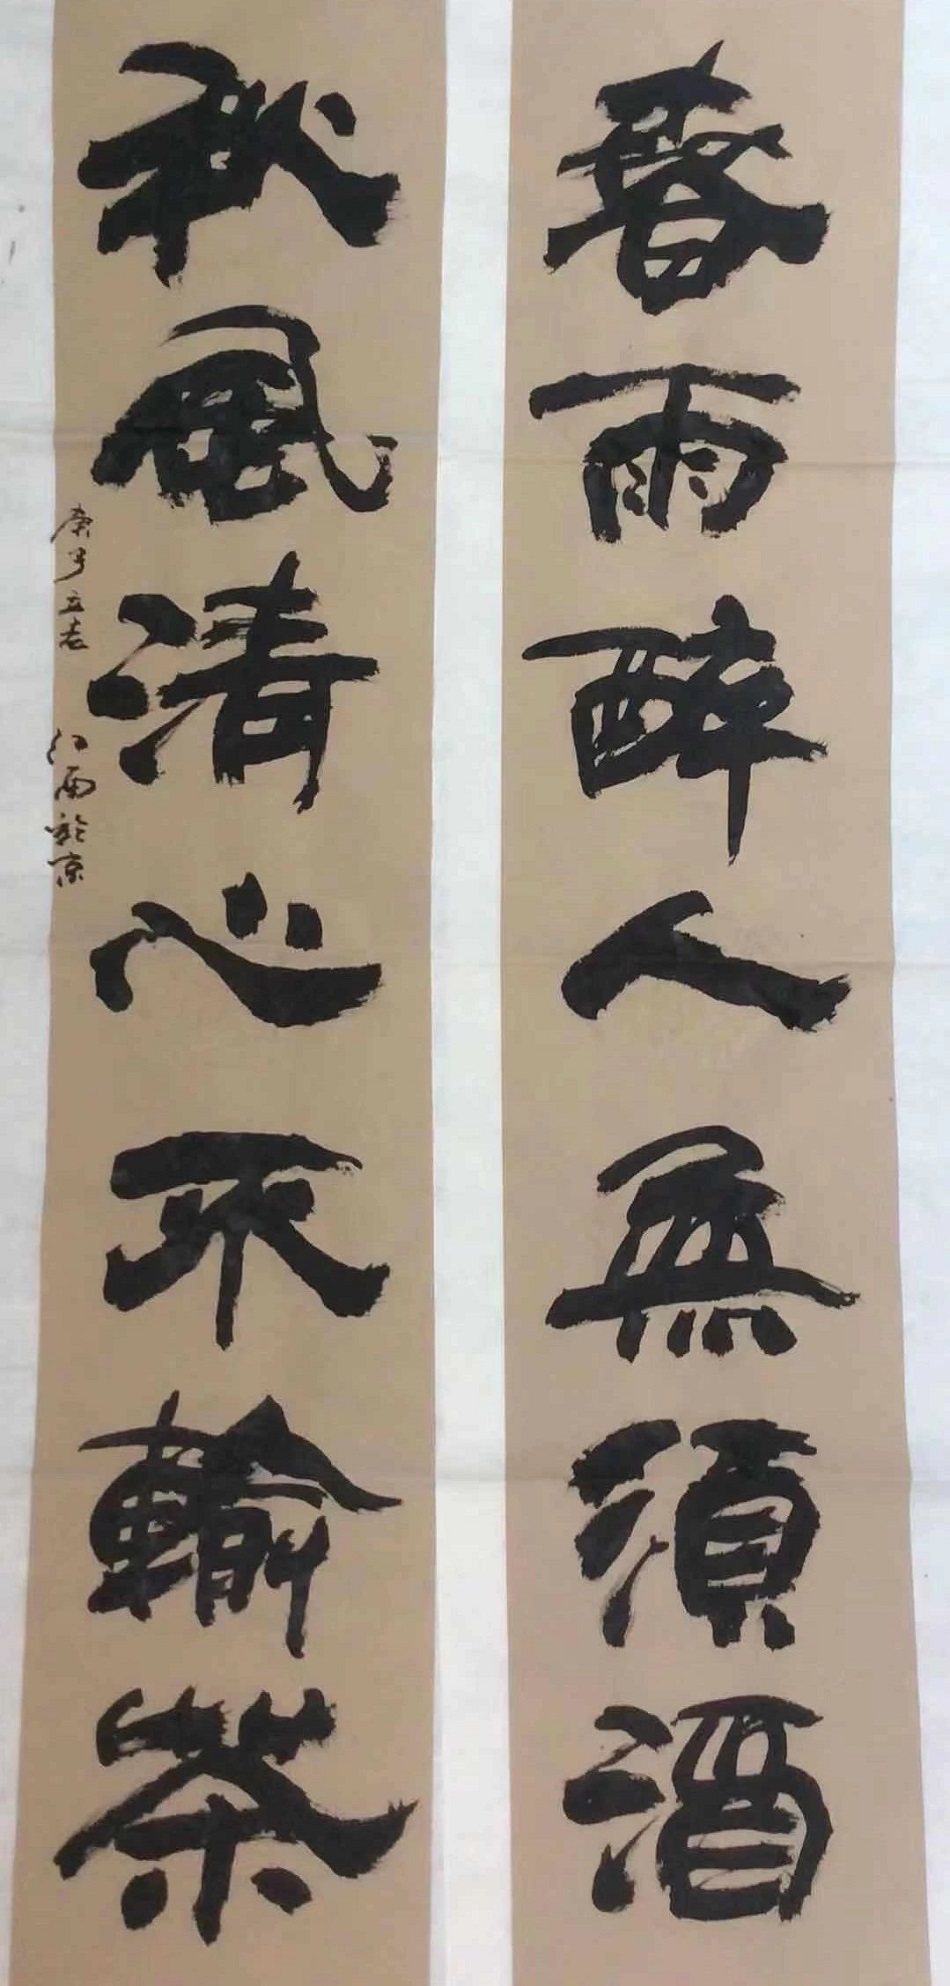 春雨醉人無須酒
秋風清心不輸茶
庚子立春
江南 於京